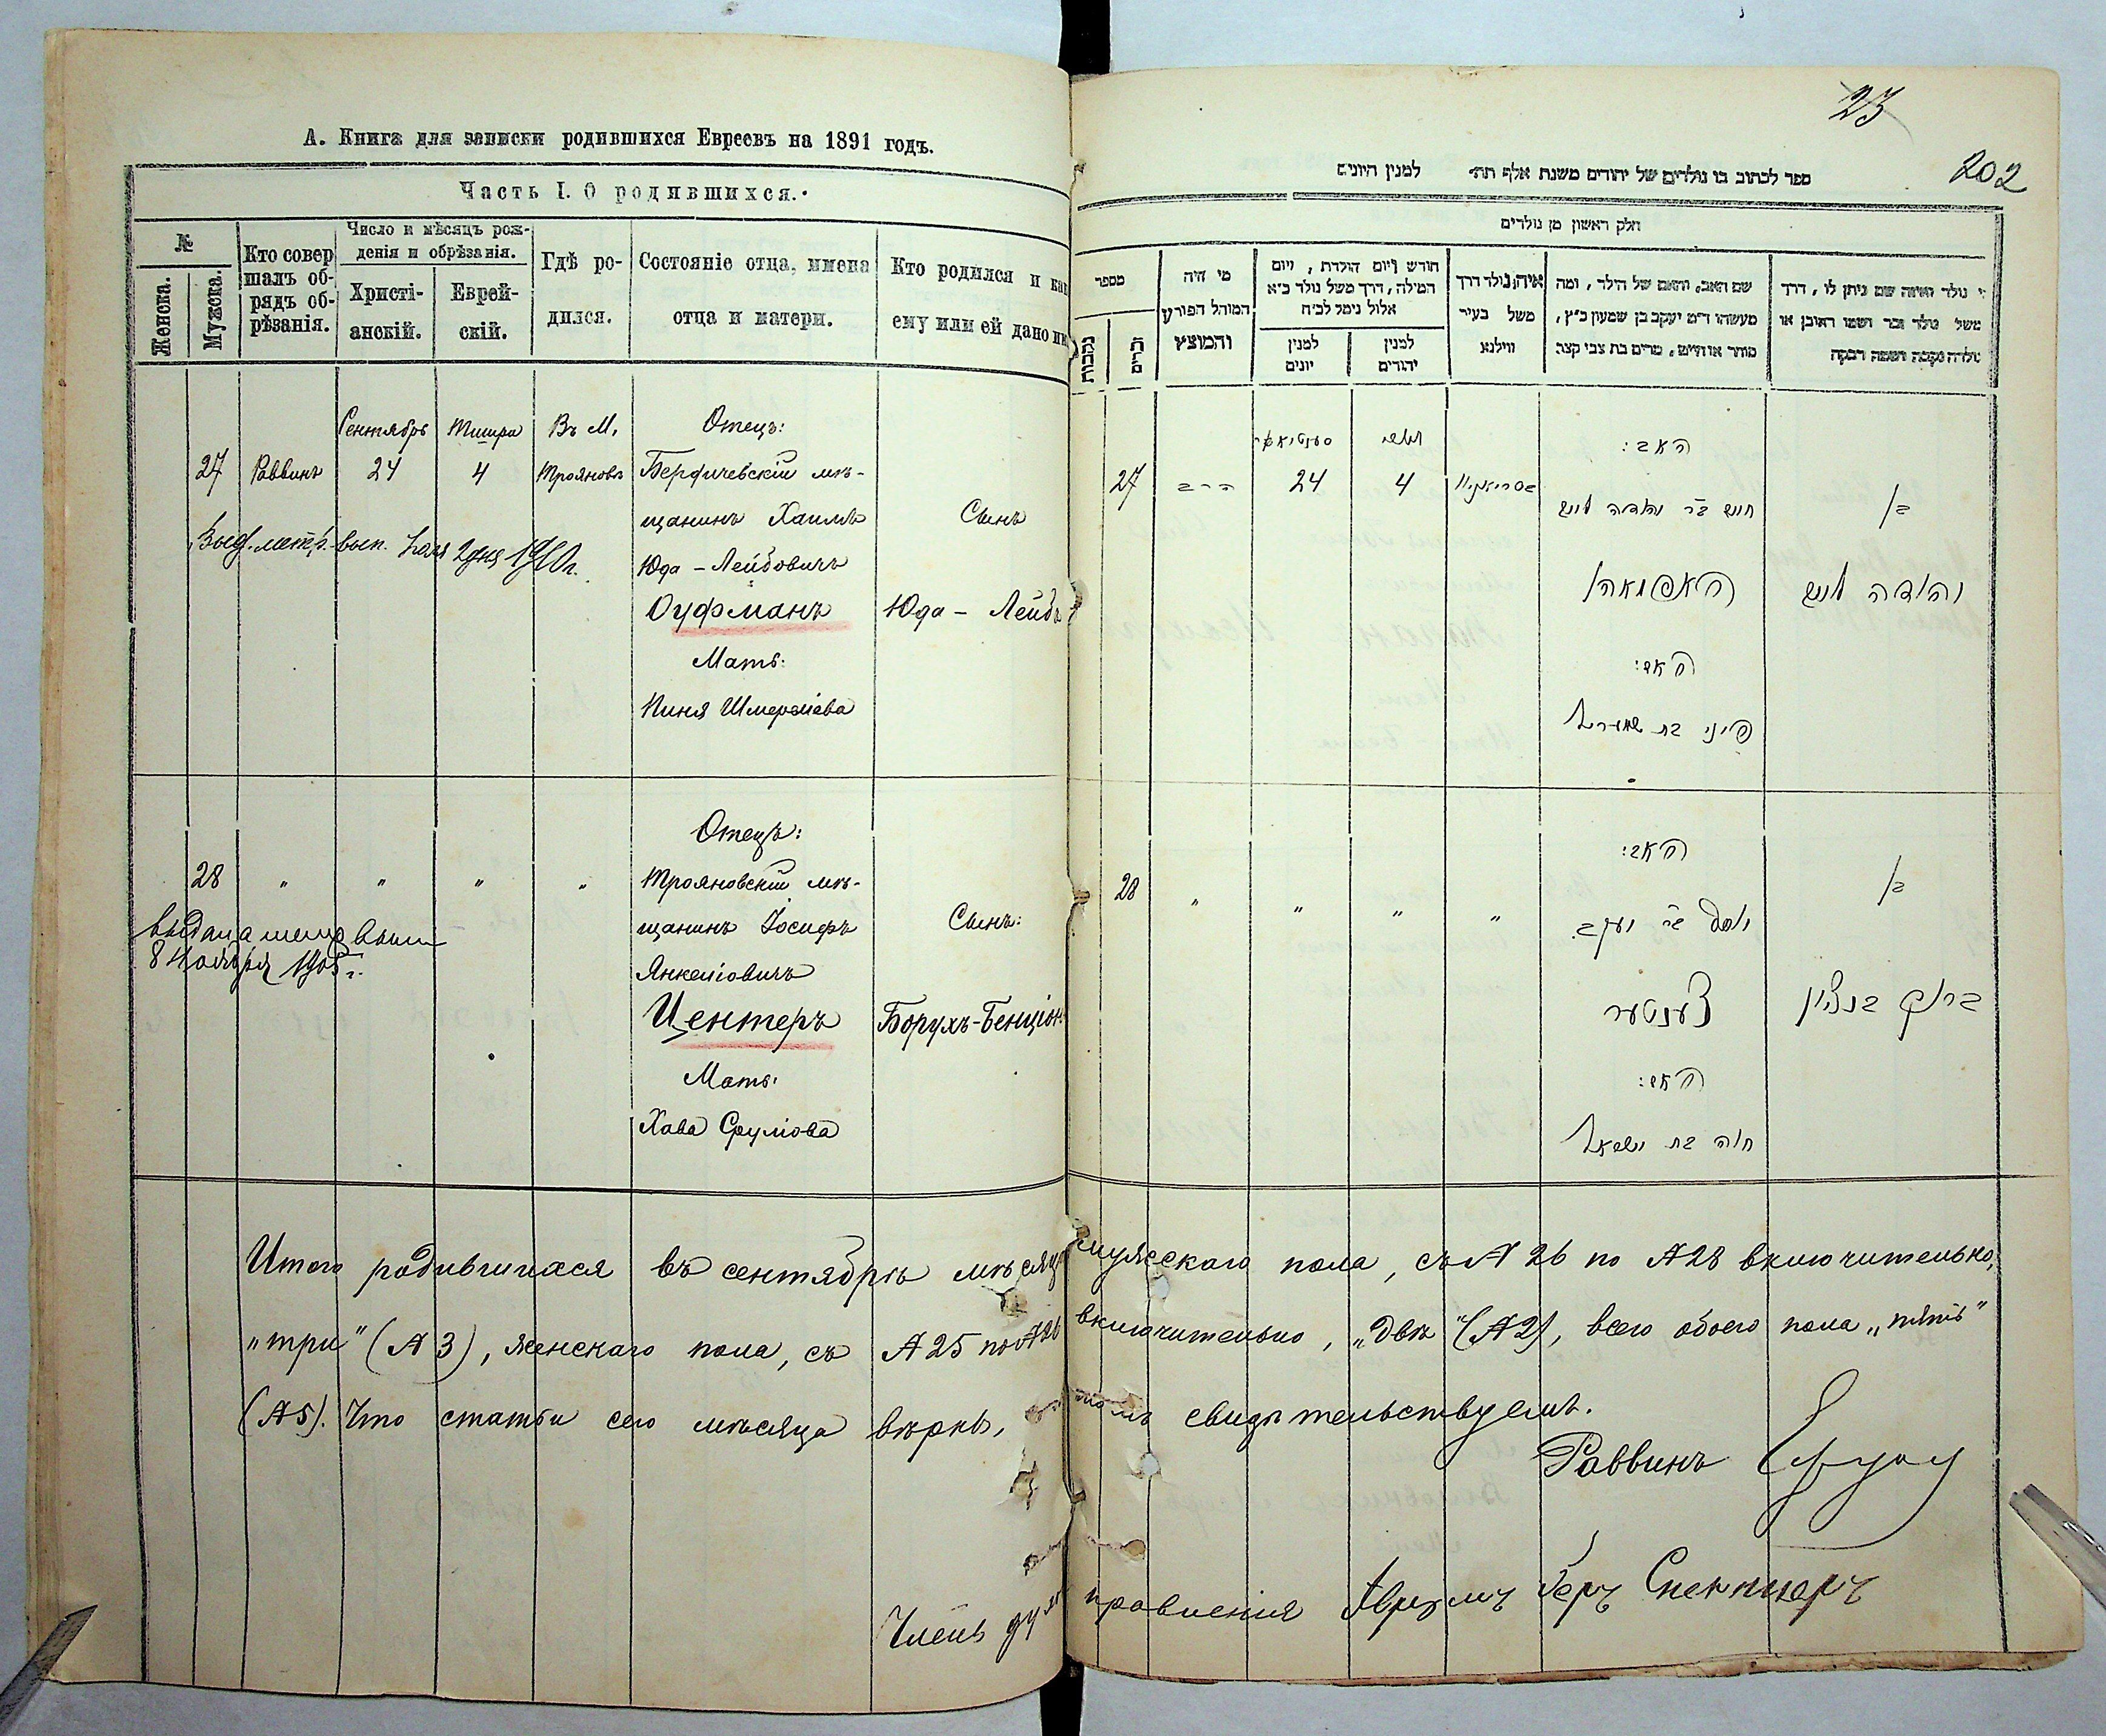 А. Книга для записки родившихся Евреевъ на 1891 годъ.
Часть I. О родившихся.
№
Женска.
Мужска.
Кто совер
шалъ об-
рядъ об-
рѣзанія.
Число и мѣсяцъ рож-
денія и обрѣзанія.
Христі-
анскій.
Еврей-
скій.
Гдѣ ро-
дился.
Состояніе отца, имена
отца и матери.
Кто родился и как
ему или ей дано им
27
Раввинъ
Сентябрь
24
Тишра
4
Въ М.
Трояновъ
Отецъ:
Бердичевскій мѣ-
щанинъ Хаимъ
Юда-Лейбовичъ
Гуфманъ
Мать:
Пиня Шмерлiова
Сынъ
Юда-Лейбъ
Выд. метр. вып. 1910г.
28
"
"
"
"
Отецъ:
Трояновскій мѣ-
щанинъ Іосифъ
Янкеліовичъ
Центеръ
Мать:
Хава Сруліова
Сынъ:
Борухъ-Бенціон
выдана метр вып
8 Ноября 1905г.
23
202
ספר לכתוב בו נולדים של יהודים משנת אלף תת' למנין היונים
חלק ראשון מן נולדים
מספר
נקבות
זכרים
מי היה
המוהל הפורע
והמוצץ
חודש ויום הולדת, ויום
המילה, דרך משל נולד כ״א
אלול נימל לכ״ח
למנין
יונים
למנין
יהודים
איה נולד דרך
משל בעיר
ווילנא
שם האב, והאם של הילד, ומה
מעשהו ד״מ יעקב בן שמעון כ״ץ,
סוחר או חייט, מרים בת צבי קצב
מי נולד ואיזה שם ניתן לו, דרך
משל נולד זכר ושמו ראובן או
נולדה נקבה ושמה רבקה
27
הרב
סענטיאבר
24
תשרי
4
האב:
חיים בר יהודה לייב
האפמאן
האם:
פיני בת שמעריל
בן
יהודה לייב
28
"
"
"
"
האב:
יוסף בר יעקב
צענטער
האם:
חוה בת ישראל
בן
ברוך בנציון
Итого родившихся въ сентябрѣ мѣсяцѣ мужескаго пола, съ № 26 по № 28 включительно,
„три" (№ 3), женскаго пола, съ № 25 по № 26 включительно, „двѣ" (№ 2), всего обоего пола „пять"
(№ 5). Что статьи сего мѣсяца вѣрны, въ томъ свидѣтельствуемъ.
Раввинъ
Членъ дух правленія Аврумъ Беръ Спекторъ